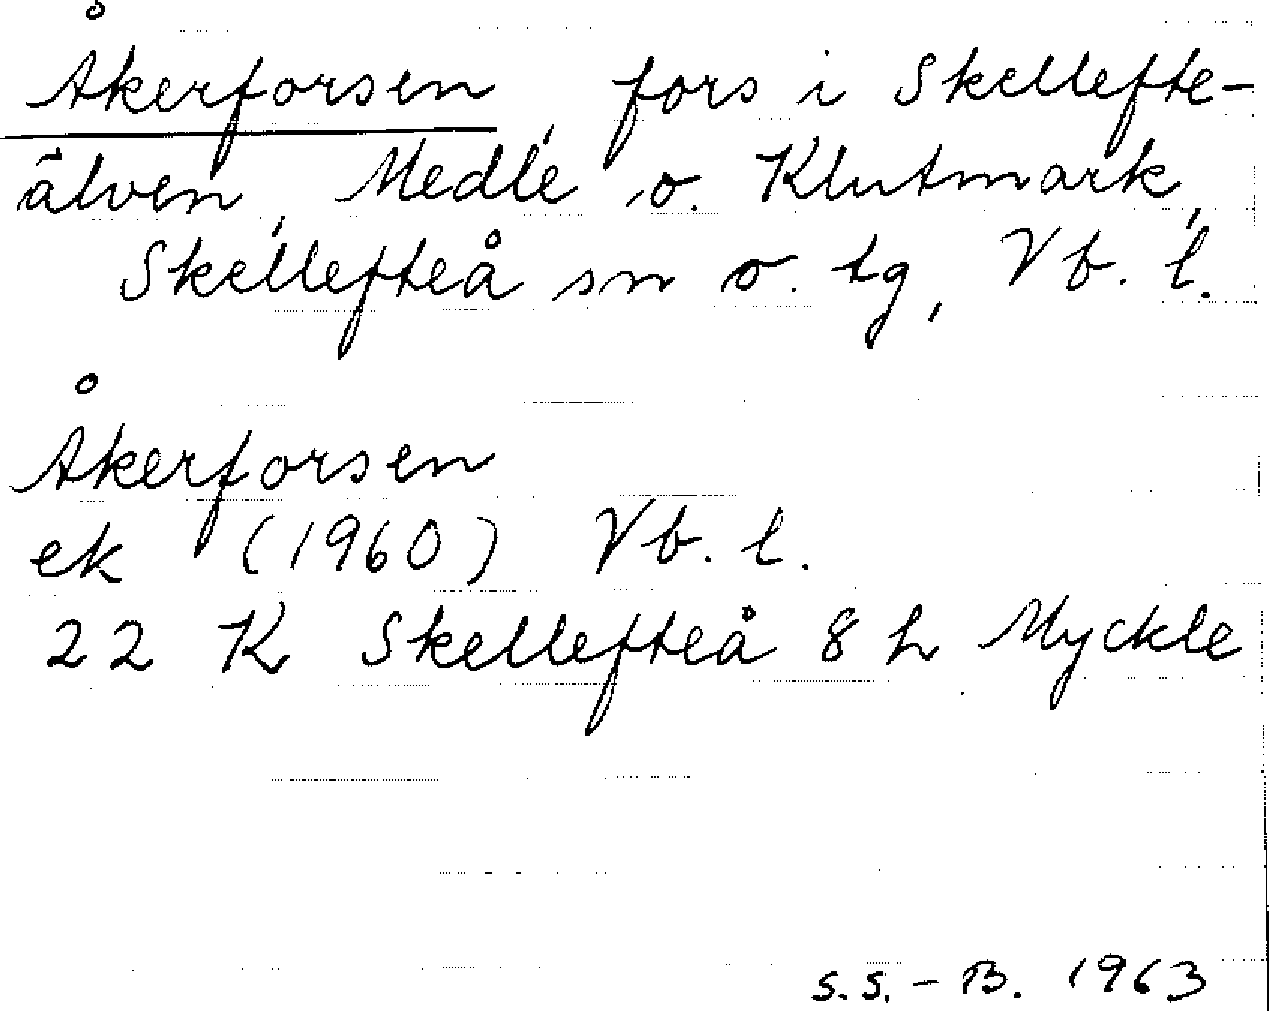 Åkerforsen, fors i Skellefte-
älven, Medle o. Klutmark,
Skellefteå sn o. tg, Vb. l.
Åkerforsen
ek (1960) Vb. l.
22 K Skellefteå 8 h Myckle
S.S. - B. 1963